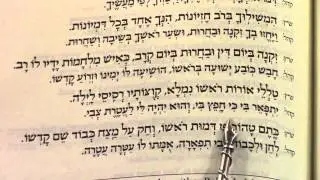 לְפִי מַעֲשֶׂיךָ.
הִמְשִׁילוּךָ בְּרֹב חֶזְיוֹנוֹת, הִנְּךָ אֶחָד בְּכָל דִּמְיוֹנוֹת.
וַיֶּחֱזוּ בְךָ זִקְנָה וּבַחֲרוּת, וּשְׂעַר רֹאשְׁךָ בְּשֵׂיבָה וְשַׁחֲרוּת.
זִקְנָה בְּיוֹם דִּין וּבַחֲרוּת בְּיוֹם קְרָב, כְּאִישׁ מִלְחָמוֹת יָדָיו לוֹ רָב.
חָבַשׁ כּוֹבַע יְשׁוּעָה בְּרֹאשׁוֹ, הוֹשִׁיעָה לּוֹ יְמִינוֹ וּזְרוֹעַ קָדְשׁוֹ.
טַלְלֵי אוֹרוֹת רֹאשׁוֹ נִמְלָא, קְוֻצּוֹתָיו רְסִיסֵי לָיְלָה.
יִתְפָּאֵר בִּי כִּי חָפֵץ בִּי, וְהוּא יִהְיֶה לִּי לַעֲטֶרֶת צְבִי.
כֶּתֶם טָהוֹר דְּמוּת רֹאשׁוֹ, וְחַק עַל מֵצַח כְּבוֹד שֵׁם קָדְשׁוֹ.
לְחֵן וּלְכָבוֹד צְבִי תִפְאָרָה, אֻמָּתוֹ לוֹ עִטְּרָה עֲטָרָה.